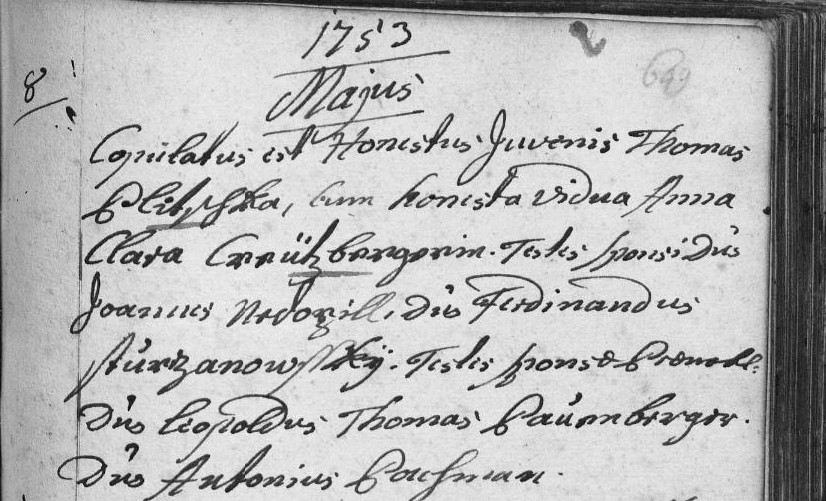 1753
649
8
Majus
Copulatus est Honestus Juvenis Thomas
Plitschka, cum honesta vidua Anna
Clara Creützbergerin. Testes sponsi Dus
Joannes Nedozill. Dus Ferdinandus
Sturzanowsskÿ. Testes sponsæ
Dus Leopoldus Thomas Bauenberger.
Dus Antonius Bachman.